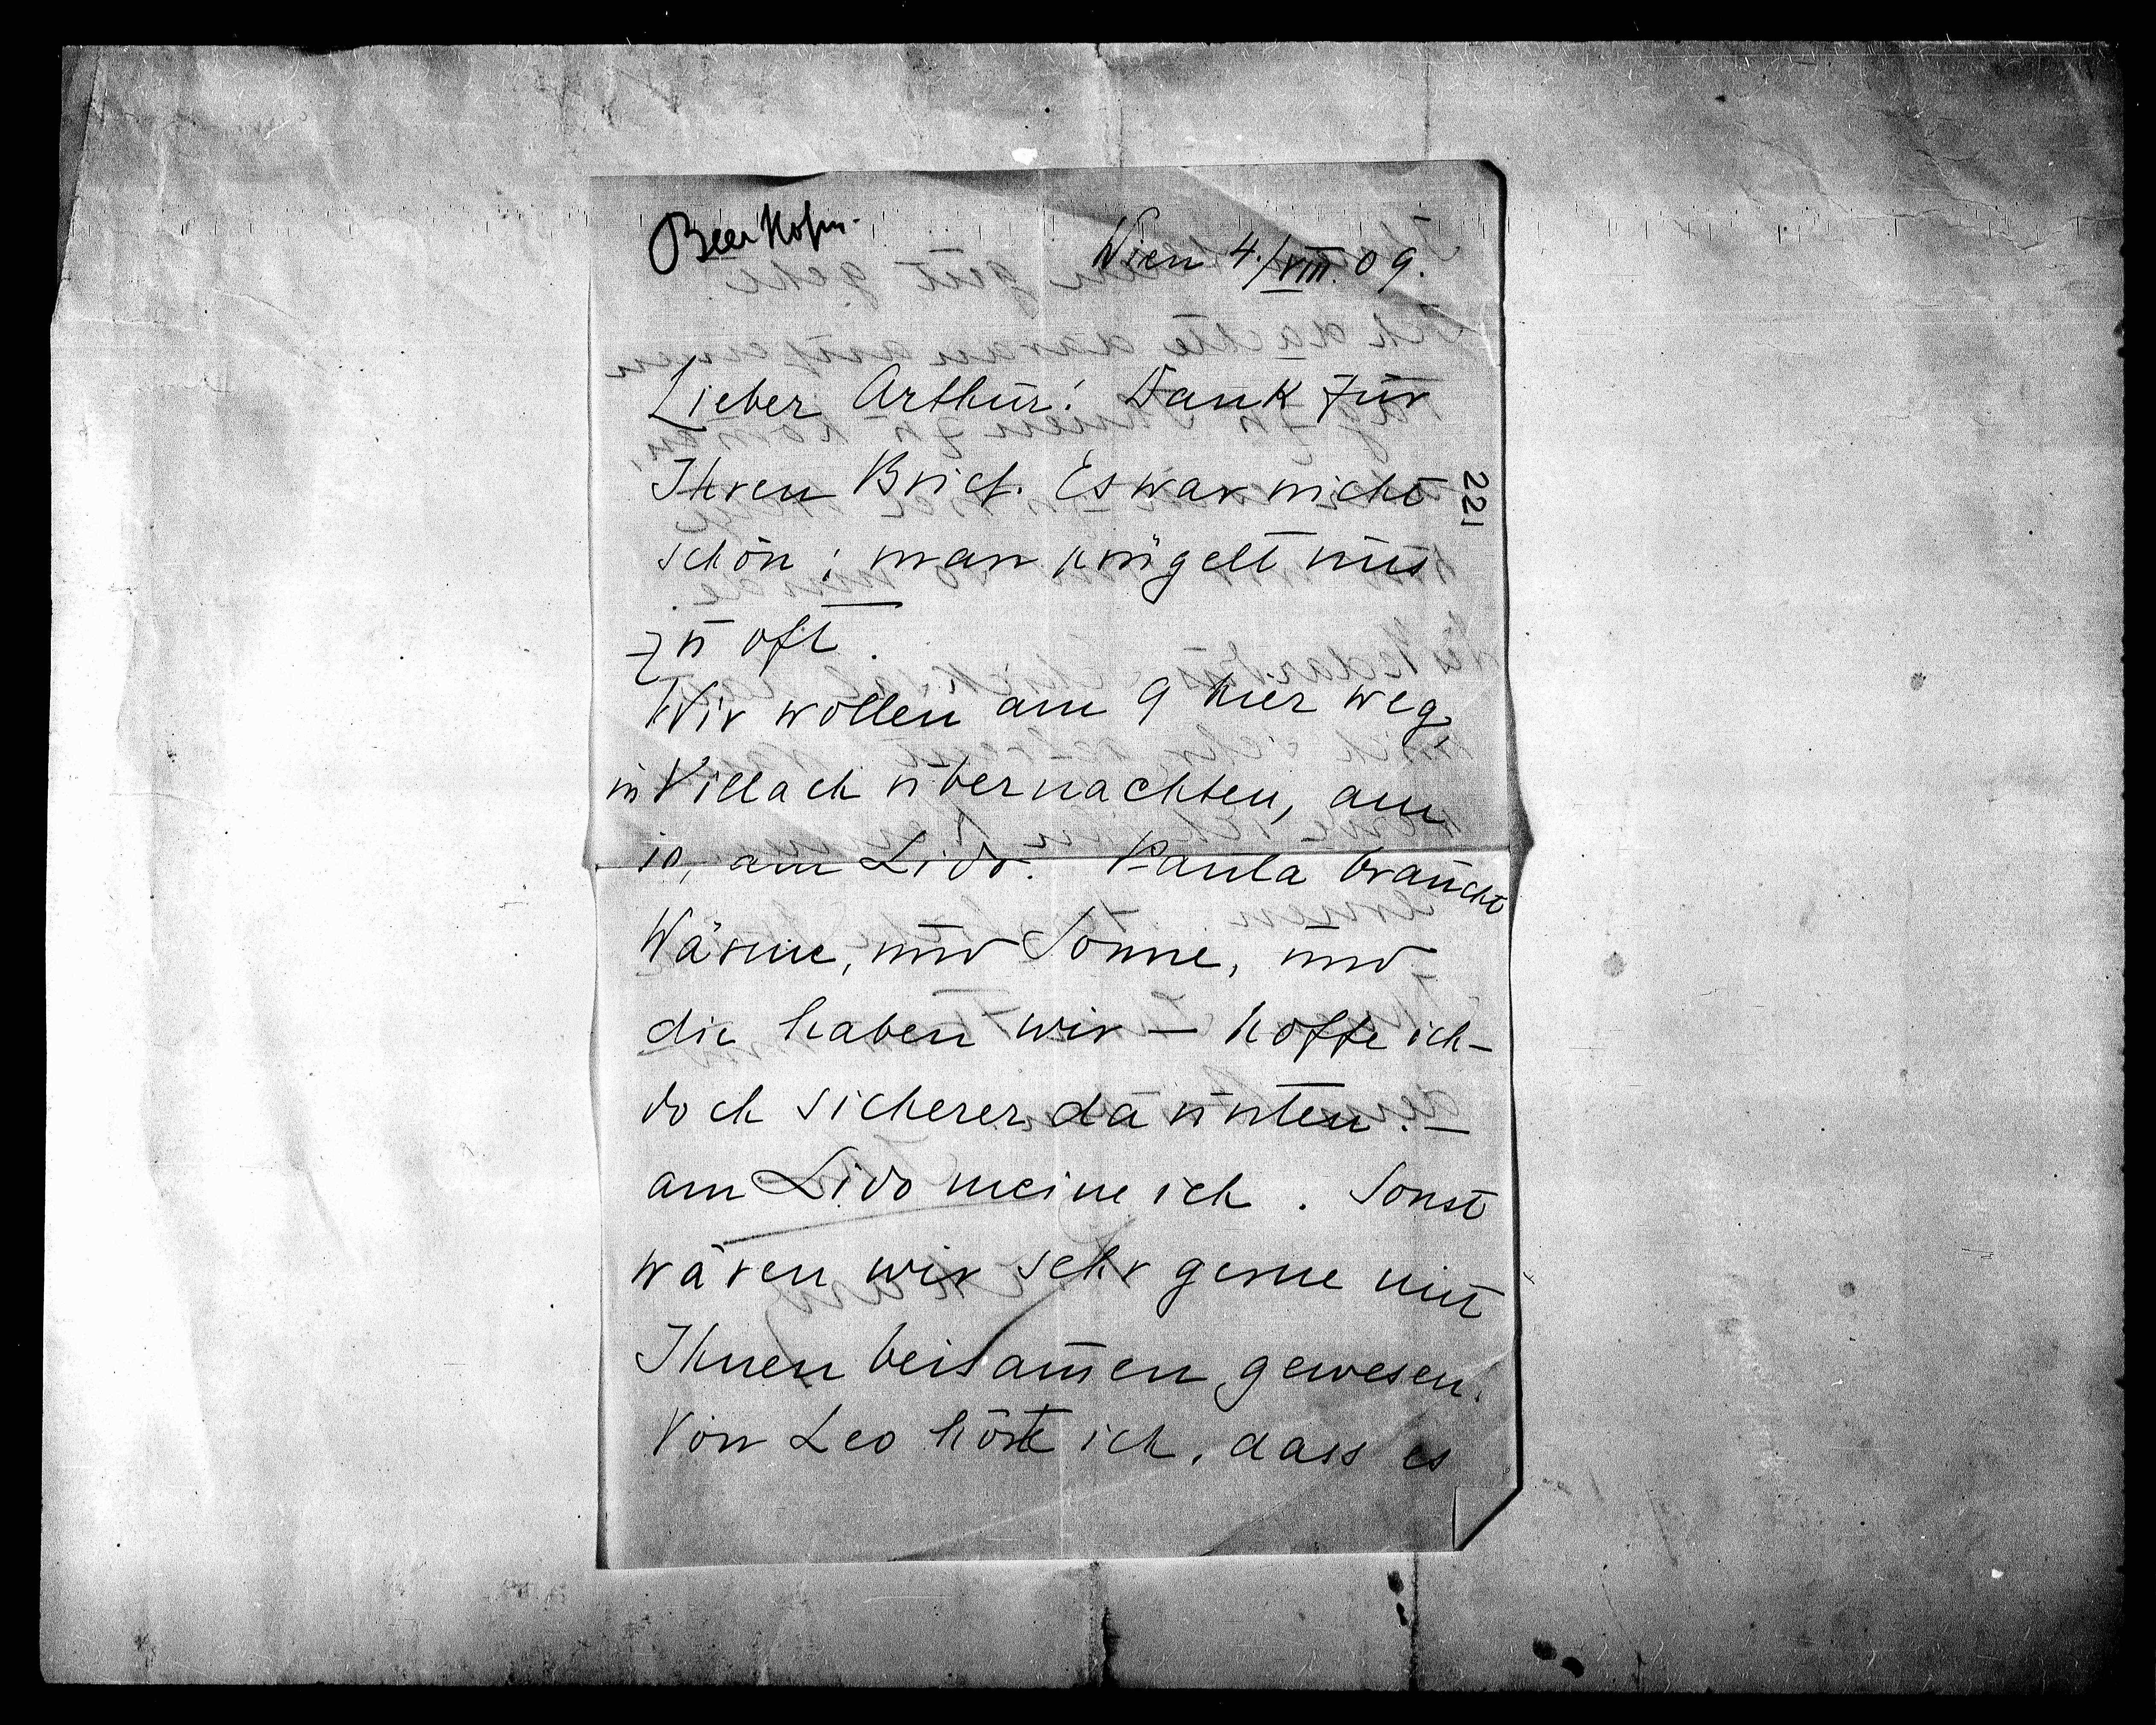 Beer Hofm.
Wien 4./VIII. 09.
Lieber Arthur! Dank für
Ihren Brief. Es war nicht
221
schön; man prügelt uns
zu oft.
Wir wollen am 9 hier weg,
in Villach übernachten, am
10, am Lido. Paula braucht
Wärme, und Sonne, und
die haben wir – hoffe ich –
doch sicherer da unten. –
am Lido meine ich. Sonst
wären wir sehr gerne mit
Ihnen beisam̄en gewesen.
Von Leo hörte ich, dass es